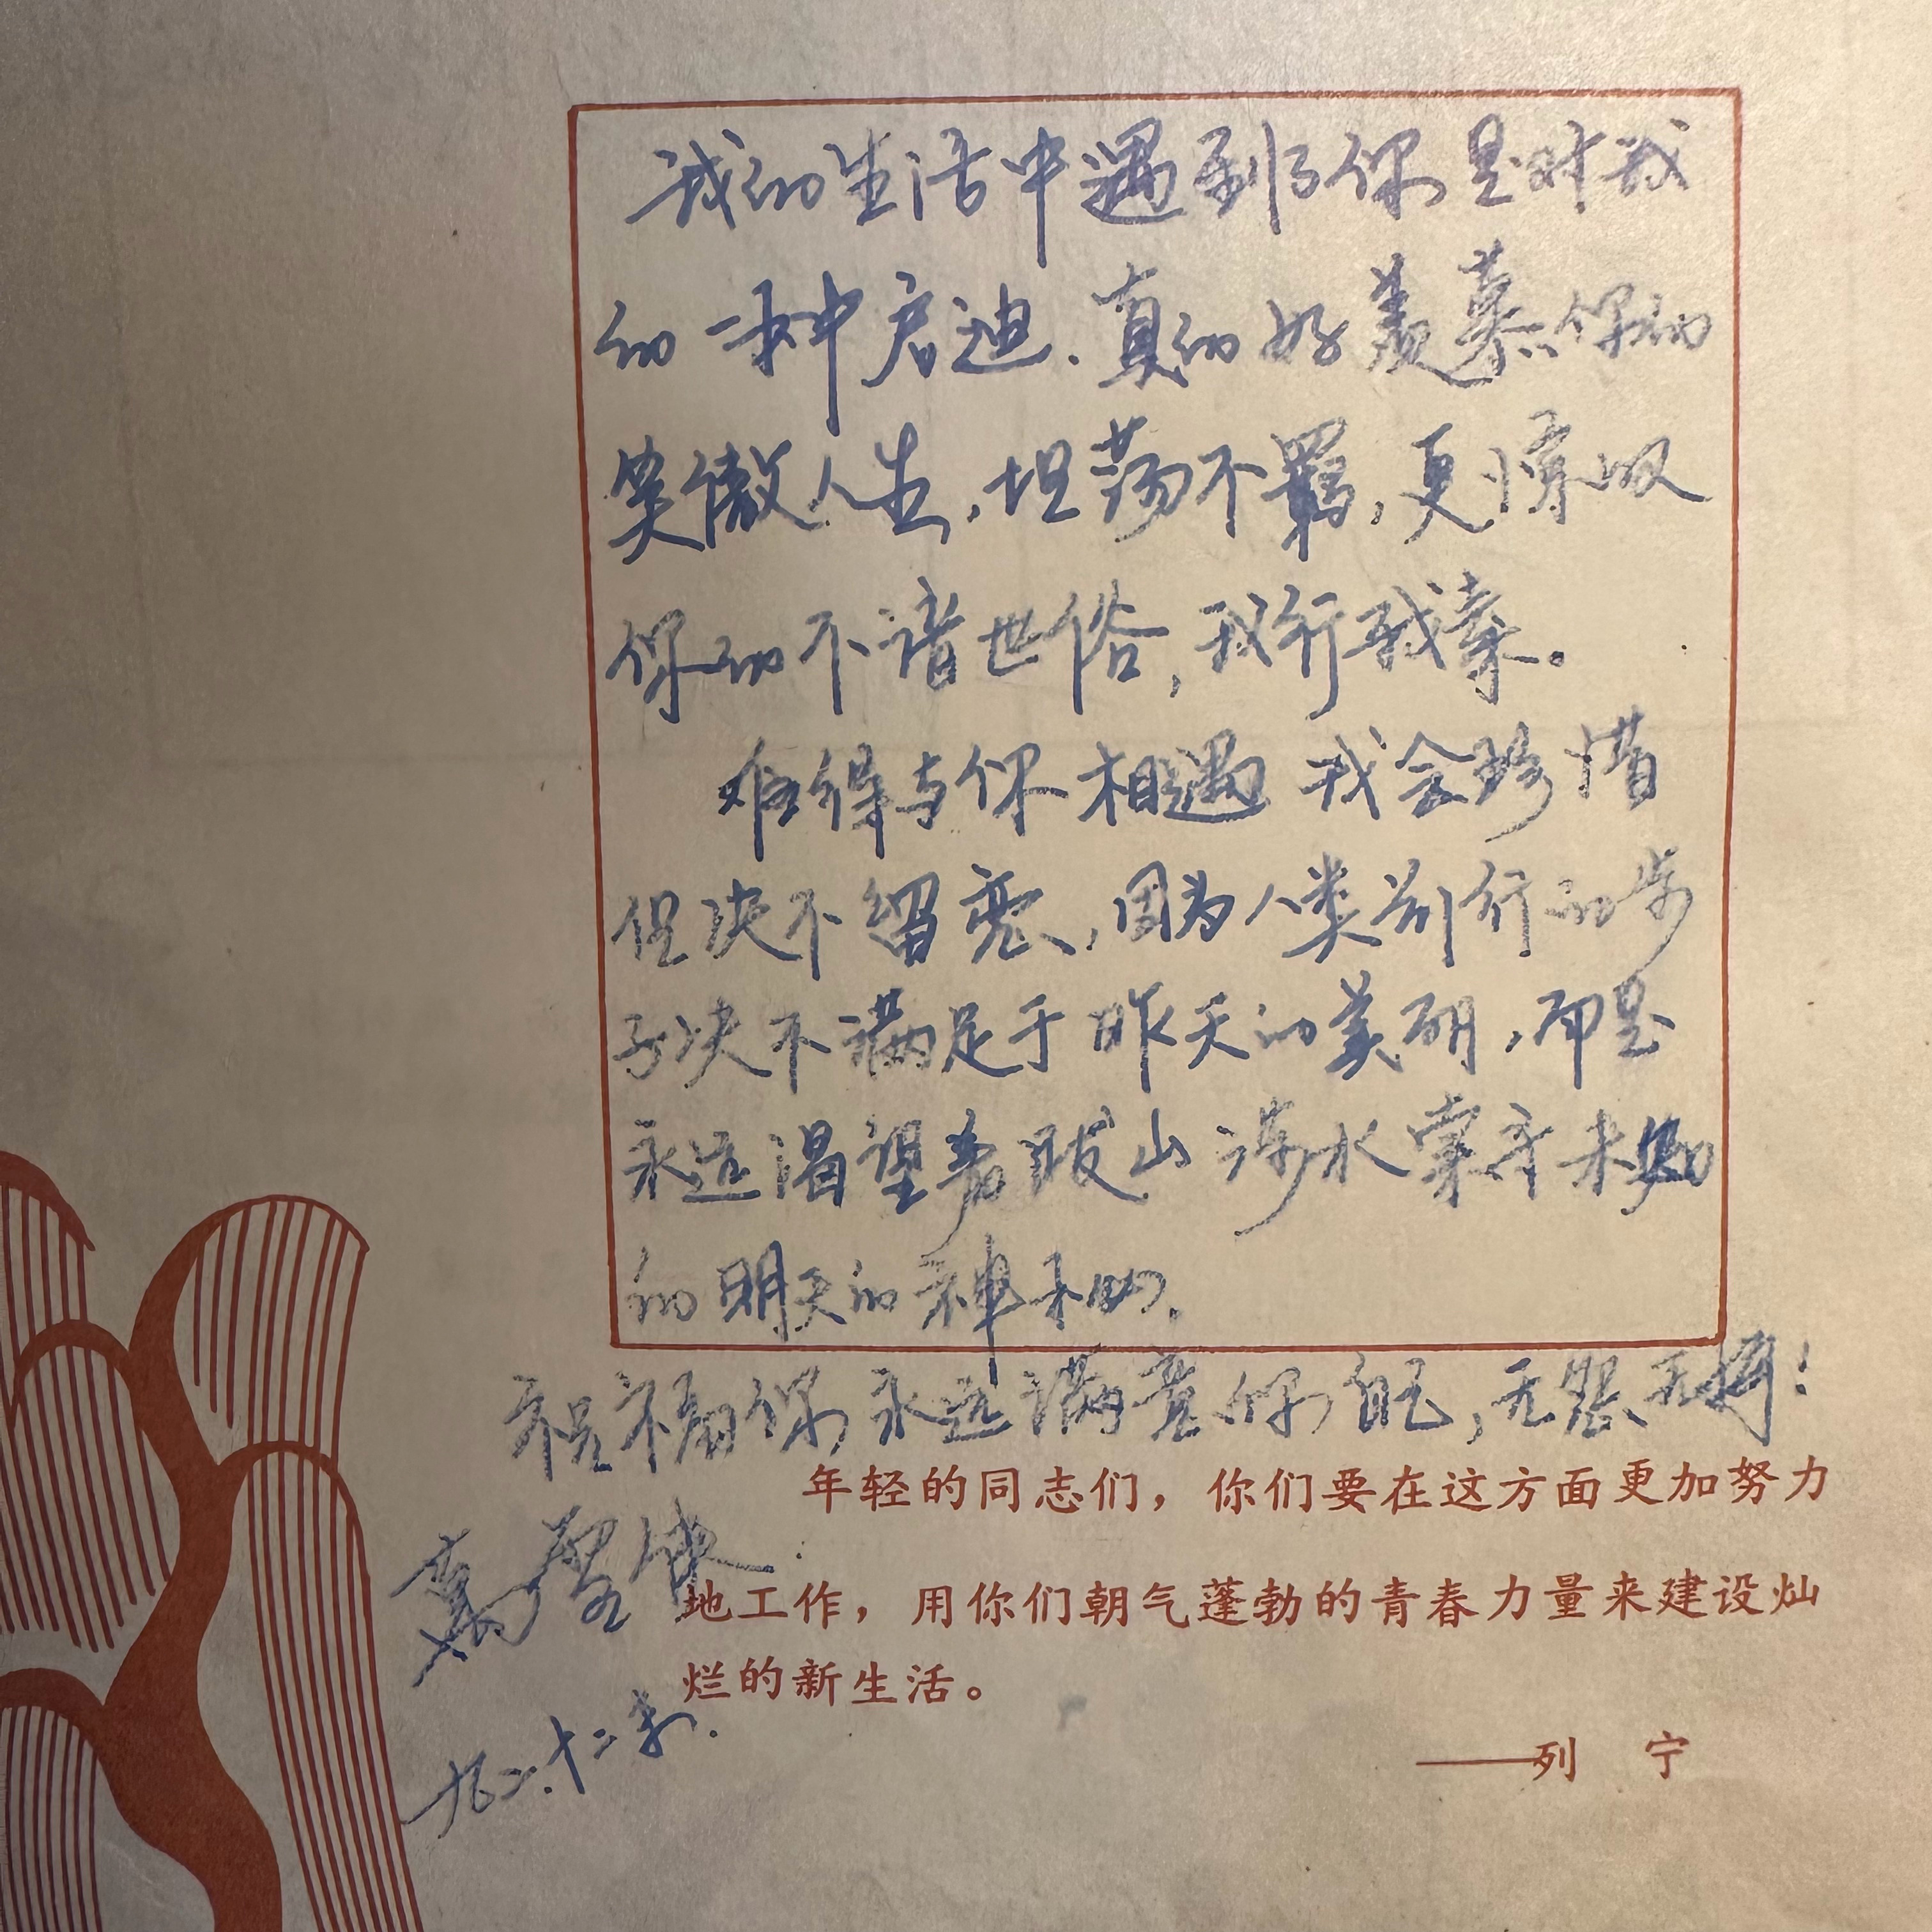 我的生活中遇到了你是对我
的一种启迪.真的好羡慕你的
笑傲人生,坦荡不羁,更惊叹
你的不谙世俗,我行我素。
难得与你相遇 我会珍惜
但决不留恋,因为人类前行的步
子决不满足于昨天的美丽,而是
永远渴望着跋山涉水寻求未知
的明天的神秘.
祝福你永远满意你自己,无怨无悔!
年轻的同志们，你们要在这方面更加努力
地工作，用你们朝气蓬勃的青春力量来建设灿
烂的新生活。
——列 宁
九二.十二